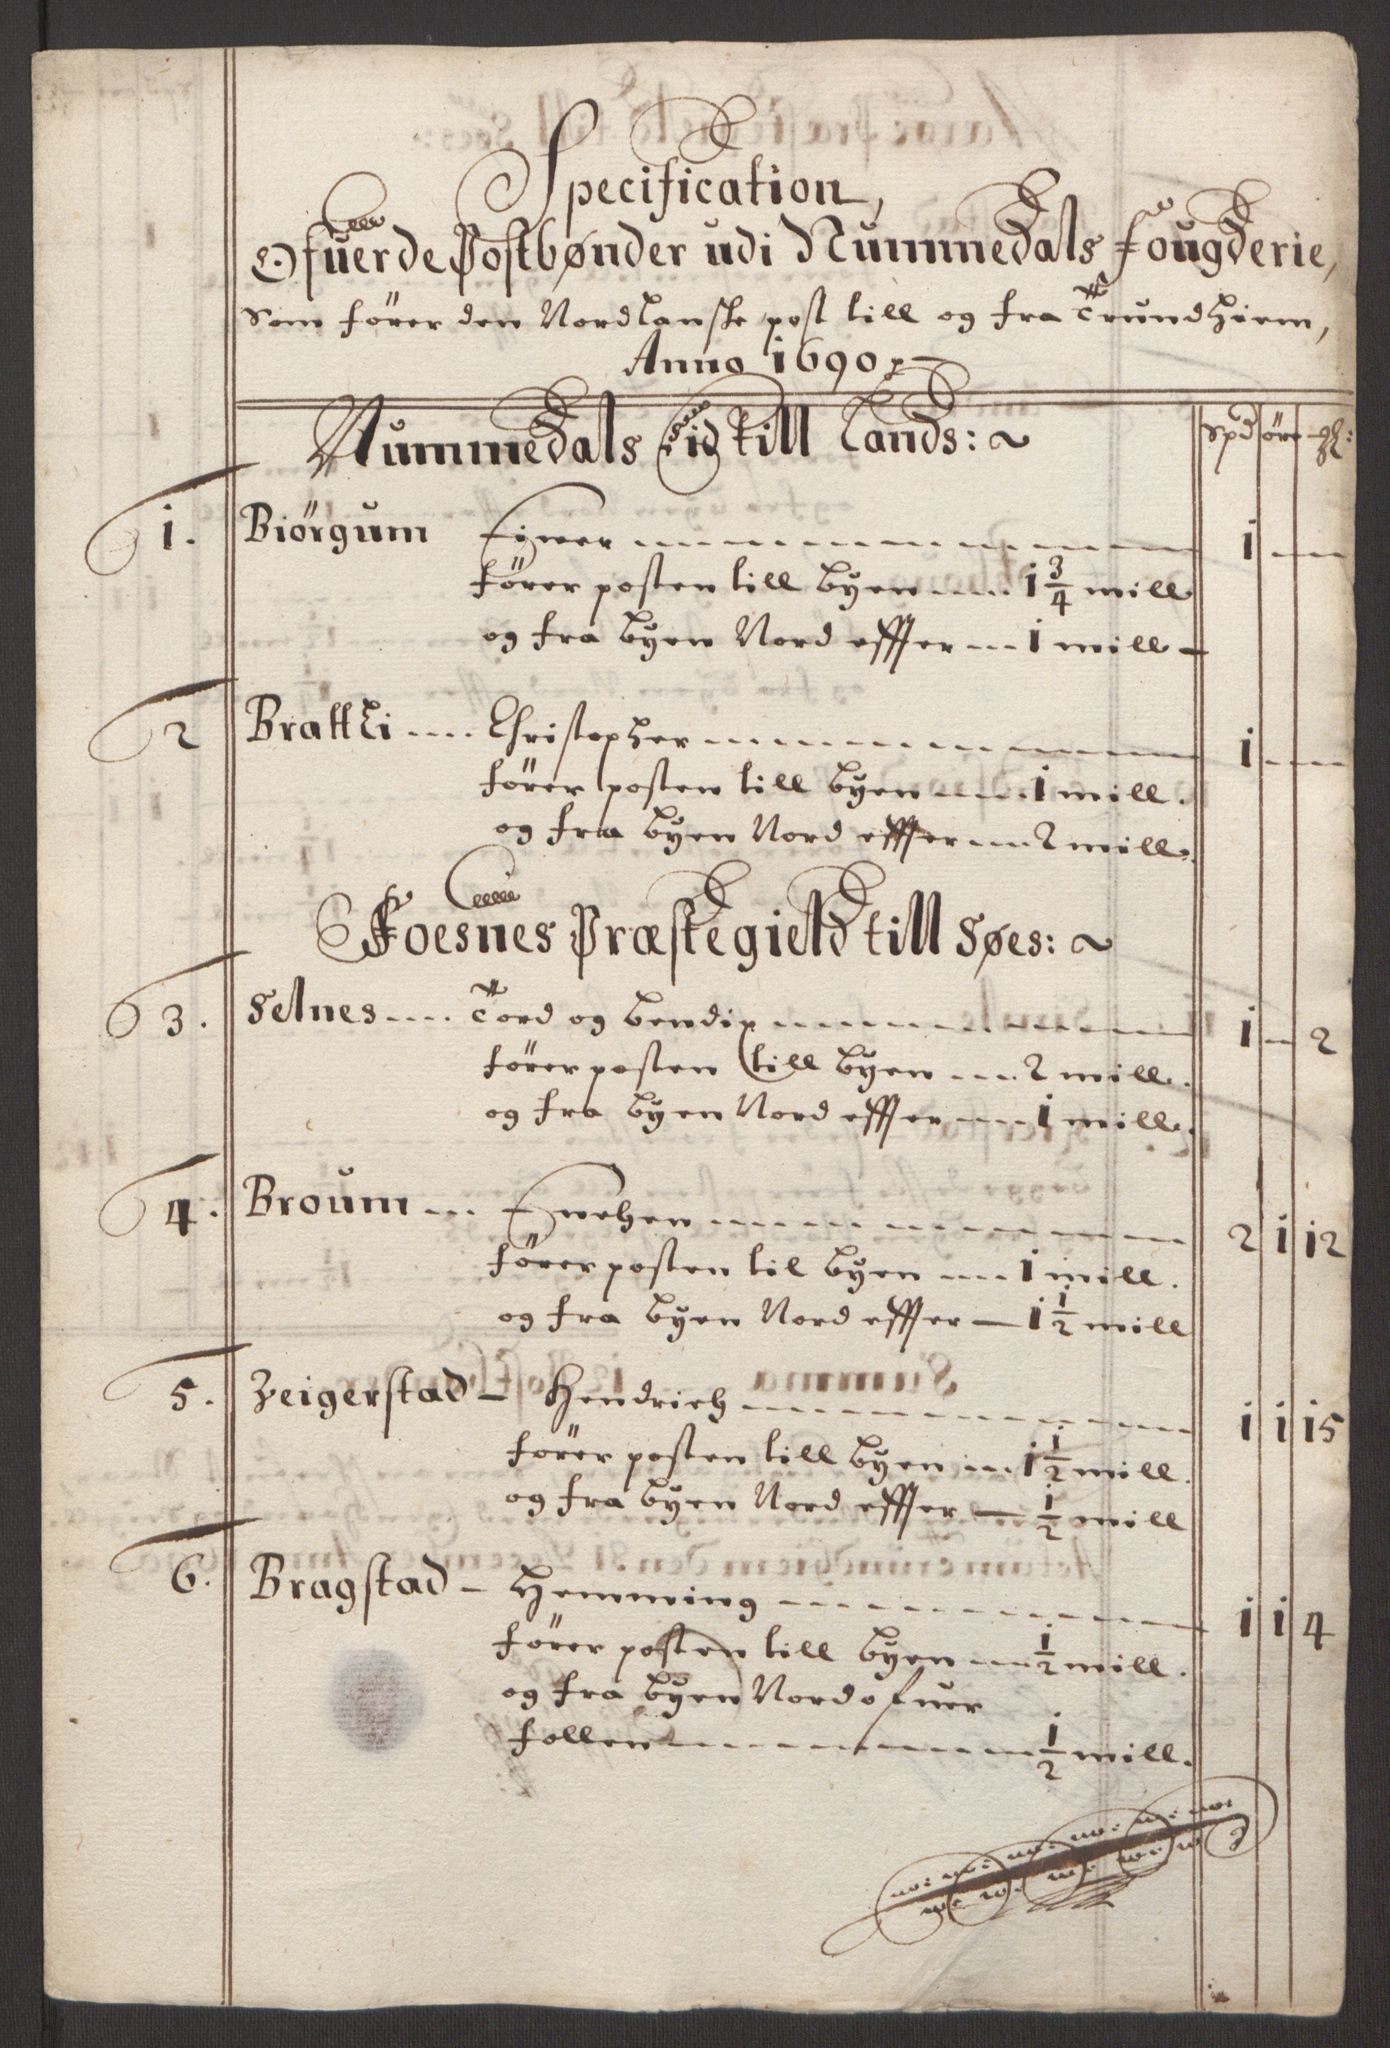 Specification,
Ofuer de Postbønder udi Nummedals fougderie,
som fører den Nordlanske post till og fra Trundhiem,
Anno 1690
Nummedals Eid till Lands: ~ Spd ört gl:
1. Biörgum Eyner 1
fører posten till byen 1 3/4 mill.
og fra byen Nord effter 1 mill
2 Brattli Christopher 1
fører posten till byen 1 mill.
og fra byen Nord effter 2 mill.
Foesnes Præstegield till Søes: ~
3. Selnes Tord og Bendix 1 - 2
fører posten till byen 2 mill.
og fra byen Nord effter 1 mill.
4. Broum Enehen 2 1 12
fører posten til byen 1 mill.
og fra byen Nord effter 1 1/2 mill
5. Zeigerstad Hendrich 1 1 15
fører posten till byen 1 1/2 mill.
og fra byen Nord effter 1/2 mill
6. Bragstad Hemming 1 1 4
fører posten till byen 1/2 mill.
og fra byen Nord ofuer
follen 1/2 mill.